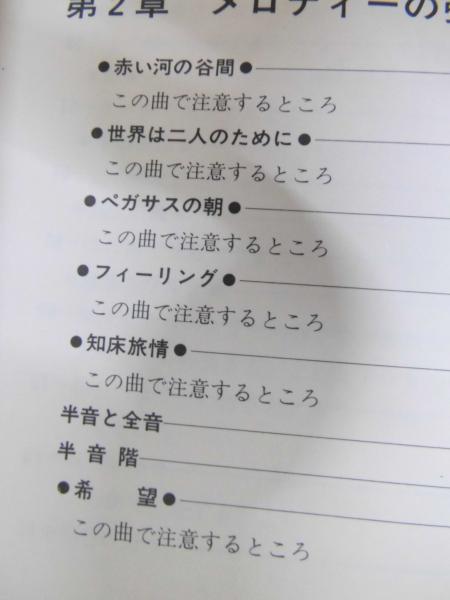 第2章 メロディーの
●赤い河の谷間●
この曲で注意するところ
●世界は二人のために●
この曲で注意するところ
●ペガサスの朝●
この曲で注意するところ
●フィーリング●
この曲で注意するところ
●知床旅情●
この曲で注意するところ
半音と全音
半音階
●希　望●
この曲で注意するところ